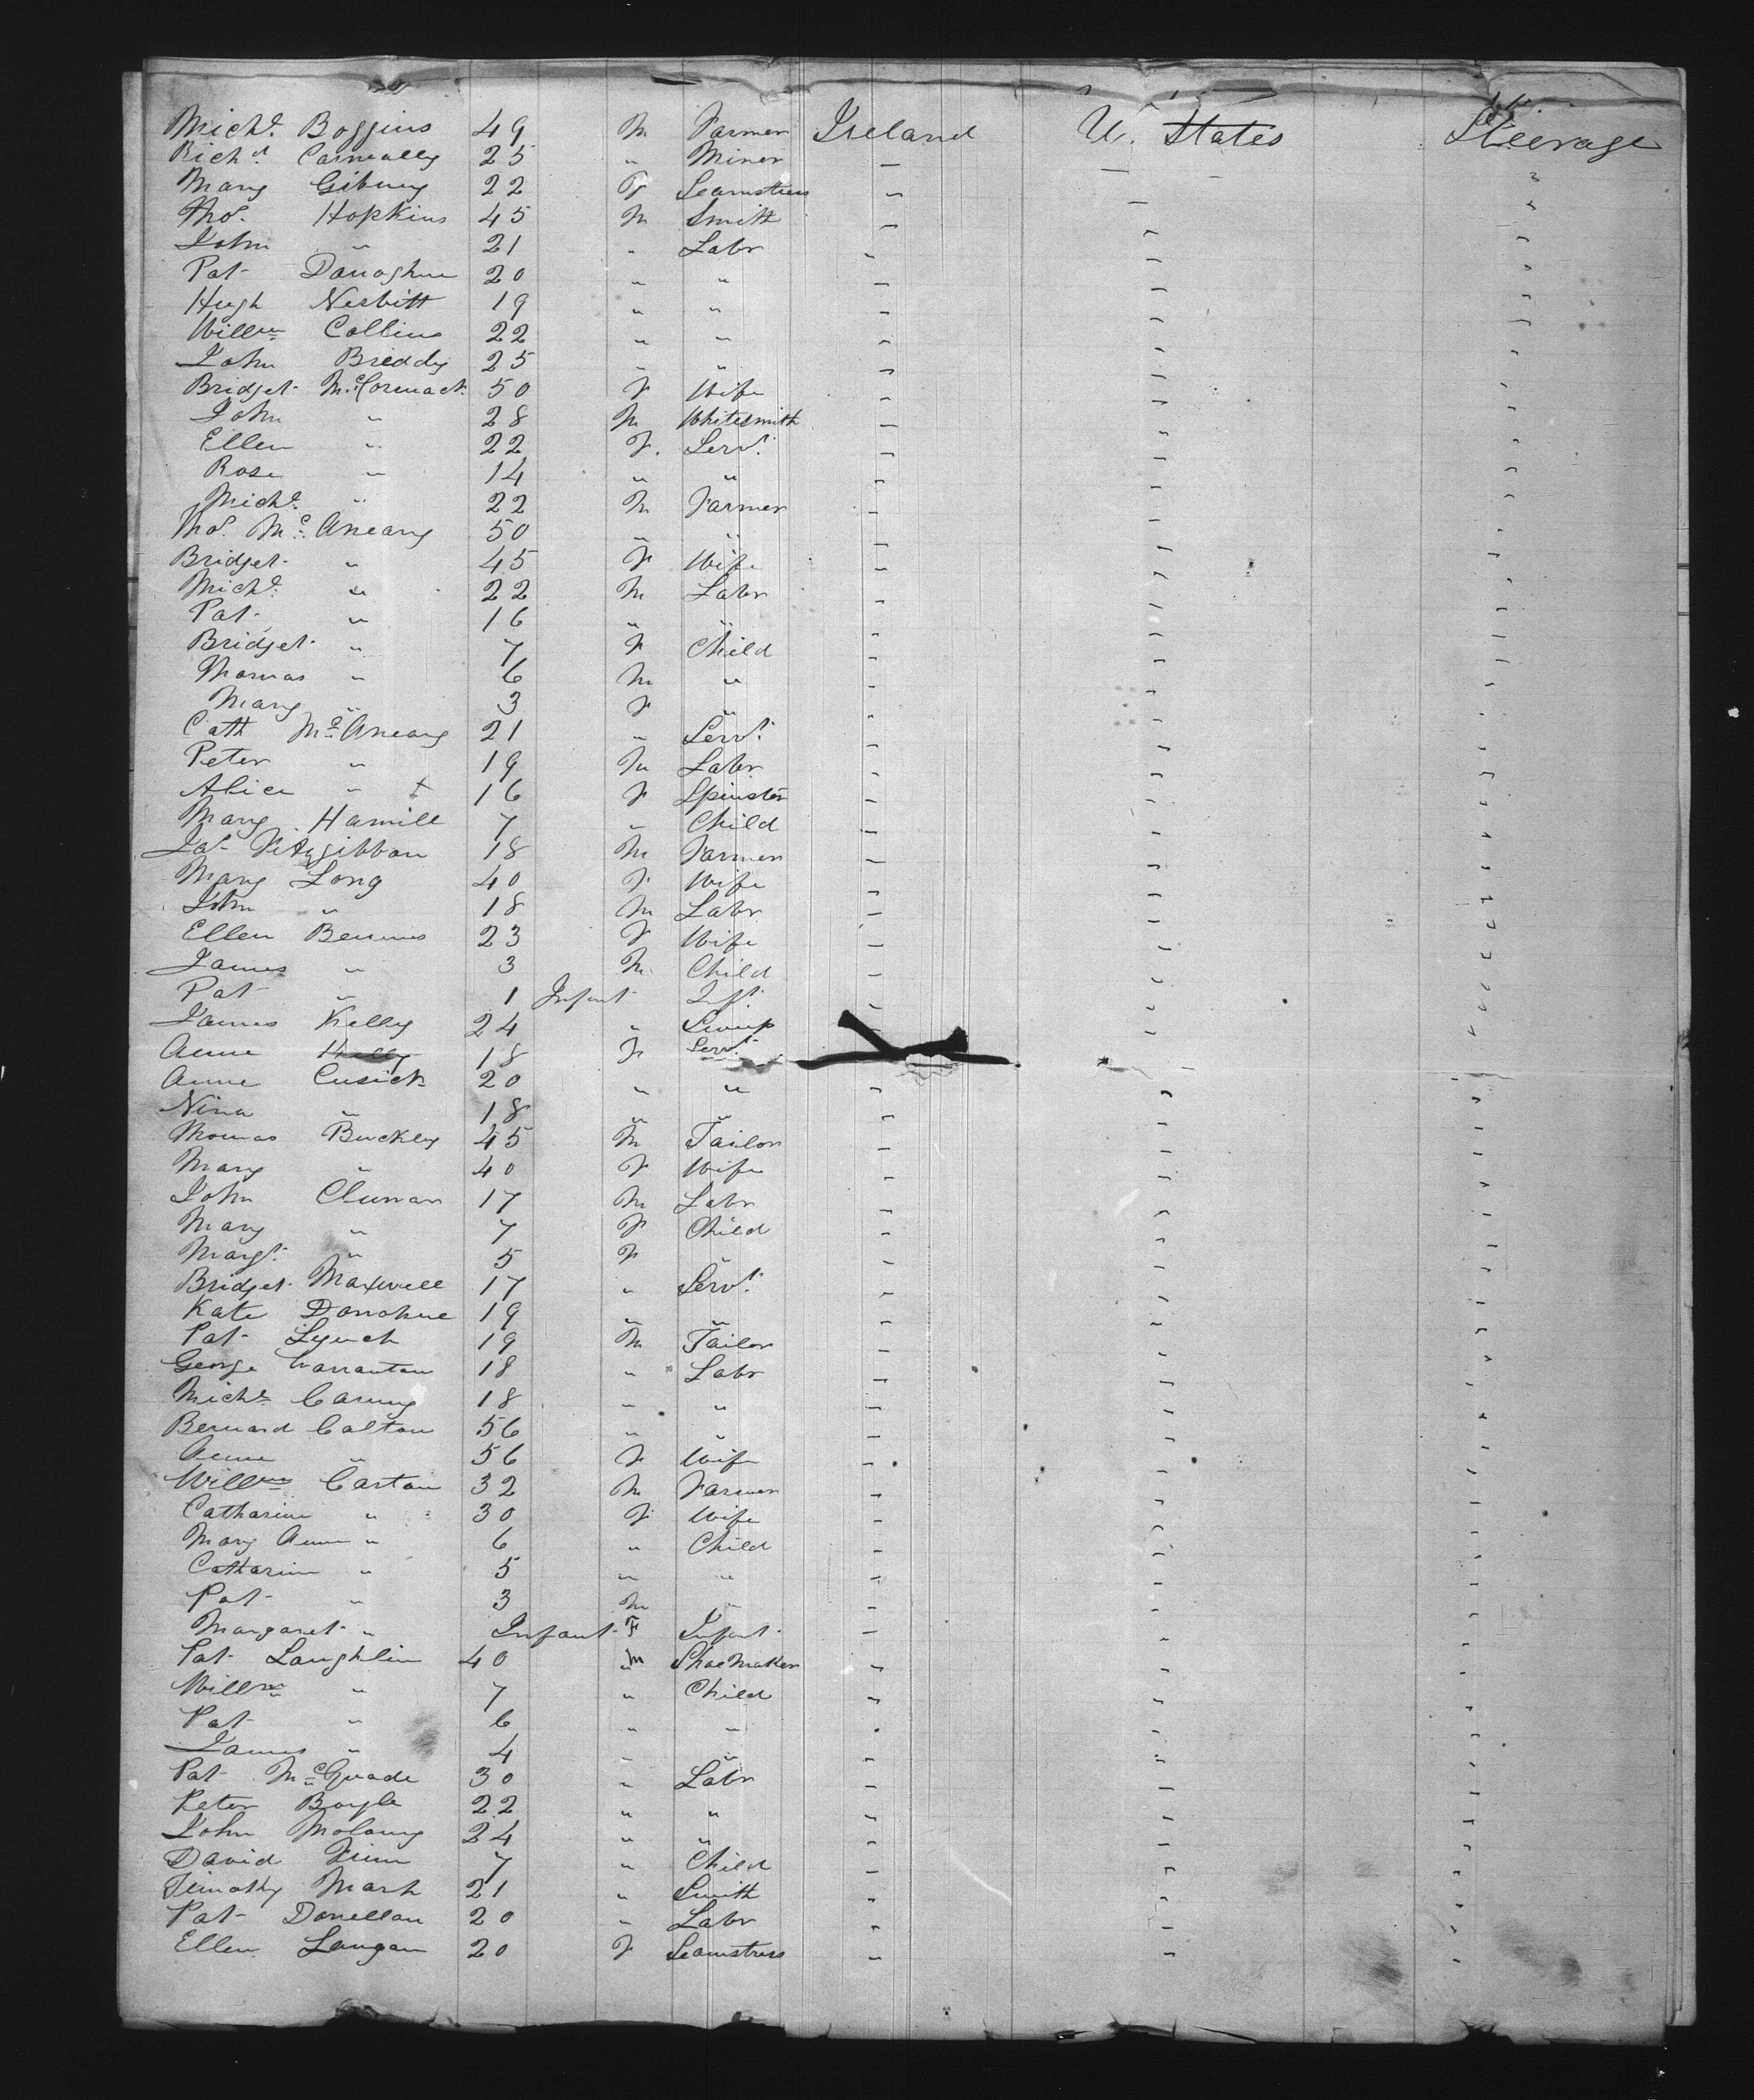 Mich.l Boggins 49 M Farmer Ireland U. States Steerage
Rich.d Conneally 25 " Miner
Mary Gibney 22 F Seamstress
Tho.s Hopkins 45 M Smith
John " 21 " Labr
Pat Donoghue 20 " "
Hugh Nesbitt 19 " "
Willm Collins 22 " "
John Breddy 25 " "
Bridget McCormack 50 F Wife
John " 28 M Whitesmith
Ellen " 22 F. Servt
Rose " 14 " "
Mich.l " 22 M Farmer
Tho.s McAneany 50 " "
Bridget " 45 F Wife
Mich.l " 22 M Labr
Pat " 16 " "
Bridget " 7 F Child
Thomas " 6 M "
Mary " 3 F "
Cath McAneany 21 " Servt
Peter " 19 M Labr
Alice " + 16 F Spinster
Mary Hamill 7 " Child
Jas Fitzgibbon 18 M Farmer
Mary Long 40 F Wife
John " 18 M Labr
Ellen 23 F Wife
James " 3 M. Child
Pat " 1 Infant Inft
James Kelly 24 "
Anne Kelly 18 F Servt
Anne Cusick 20 " "
Nina " 18 " "
Thomas Buckley 45 M Tailor
Mary " 40 F Wife
John 17 M Labr
Mary " 7 F Child
Margt " 5 F "
Bridget Maxwell 17 " Servt
Kate Donohue 19 " "
Pat Lynch 19 M Tailor
George Warranton 18 " Labr
Mich.l 18 " "
Bernard Calton 56 " "
Anne " 56 F Wife
Willm Carton 32 M Farmer
Catharine " 30 F Wife
Mary Anne " 6 " Child
Catharine " 5 " "
Pat " 3 M "
Margaret " Infant F Infant
Pat Laughlin 40 M ShoeMaker
Willm " 7 " Child
Pat " 6 " "
James " 4 " "
Pat McQuade 30 " Labr
Peter Boyle 22 " "
John Molony 24 " "
David Finn 7 " Child
Timothy Mark 21 " Smith
Pat Donellan 20 " Labr
Ellen Langan 20 F Seamstress